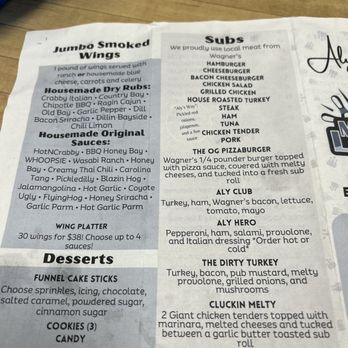 Jumbo Smoked
Wings
1 pound of wings served with
ranch or housemade blue
cheese, carrots and celery
Housemade Dry Rubs:
Crabby Italian • Country Bay •
Chipotle BBQ • Ragin Cajun •
Old Bay • Garlic Pepper • Dill
Bacon Sriracha • Dillin Bayside •
Chili Limon
Housemade Original
Sauces:
HotNCrabby • BBQ Honey Bay •
WHOOPSIE • Wasabi Ranch • Honey
Bay • Creamy Thai Chili • Carolina
Tang • Pickledilly • Blazin Hog •
Jalamangolina • Hot Garlic • Coyote
Ugly • FlyingHog • Honey Sriracha •
Garlic Parm • Hot Garlic Parm
WING PLATTER
30 wings for $38! Choose up to 4
sauces!
Desserts
FUNNEL CAKE STICKS
Choose sprinkles, icing, chocolate,
salted caramel, powdered sugar,
cinnamon sugar
COOKIES (3)
CANDY
Subs
We proudly use local meat from
Wagner's
HAMBURGER
CHEESEBURGER
BACON CHEESEBURGER
CHICKEN SALAD
GRILLED CHICKEN
HOUSE ROASTED TURKEY
STEAK
HAM
TUNA
CHICKEN TENDER
PORK
"Aly's Way"
Pickled red
onions,
and a
THE OG PIZZABURGER
Wagner's 1/4 pounder burger topped
with pizza sauce, covered with melty
cheeses, and tucked into a fresh sub
roll
ALY CLUB
Turkey, ham, Wagner's bacon, lettuce,
tomato, mayo
ALY HERO
Pepperoni, ham, salami, provolone,
and Italian dressing *Order hot or
cold*
THE DIRTY TURKEY
Turkey, bacon, pub mustard, melty
provolone, grilled onions, and
mushrooms
CLUCKIN MELTY
2 Giant chicken tenders topped with
marinara, melted cheeses and tucked
between a garlic butter toasted sub
roll